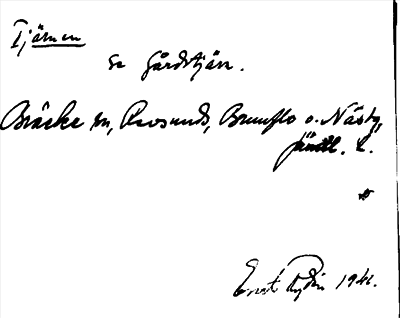 Tjärnen
se Gårdstjärn.
Bräcke sn, Revsunds, Brunflo o. Näsby,
Jämtl. L.
Ernst Rydén 1941.